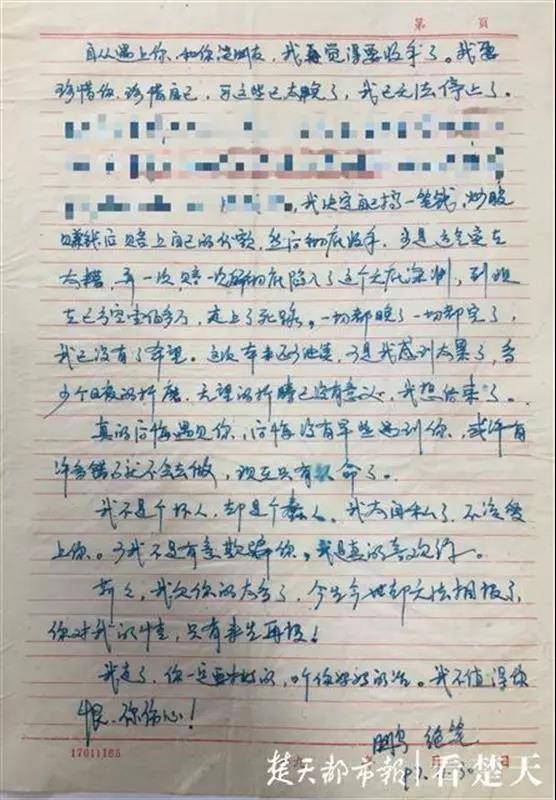 第 頁
自从遇上你，和你谈朋友，我再觉得要收手了。我要
珍惜你，珍惜自己，可这些已太晚了，我已无法停上了。
，我决定自己搞一笔钱，炒股
赚钱后赔上自己的公款，然后彻底收手，可是这实在
太糟，弄一次，赔一次，彻底陷入了这个大底深渊，到现
在已亏空壹佰多万，走上了死路。一切都晚了一切都完了，
我已没有了希望。这次本来还，可是我感到太累了，多
少个日夜的折磨，无望的折腾已没有意义，我想结束了。
真的后悔遇见你，后悔没有早些遇到你，或许有
许多错了就不会去做，现在只有认命了。
我不是个坏人，却是个蠢人。我太自私了，不该爱
上你。可我不是有意欺骗你，我是真的喜欢你。
莉，我欠你的太多了，今生今世却无法相报了，
你对我的情，只有来生再报！
我走了，你一定要好好的，好好的活。我不值得你
恨，你伤心！
鹏 绝笔
97. 30日
17011165
楚天都市报 看楚天